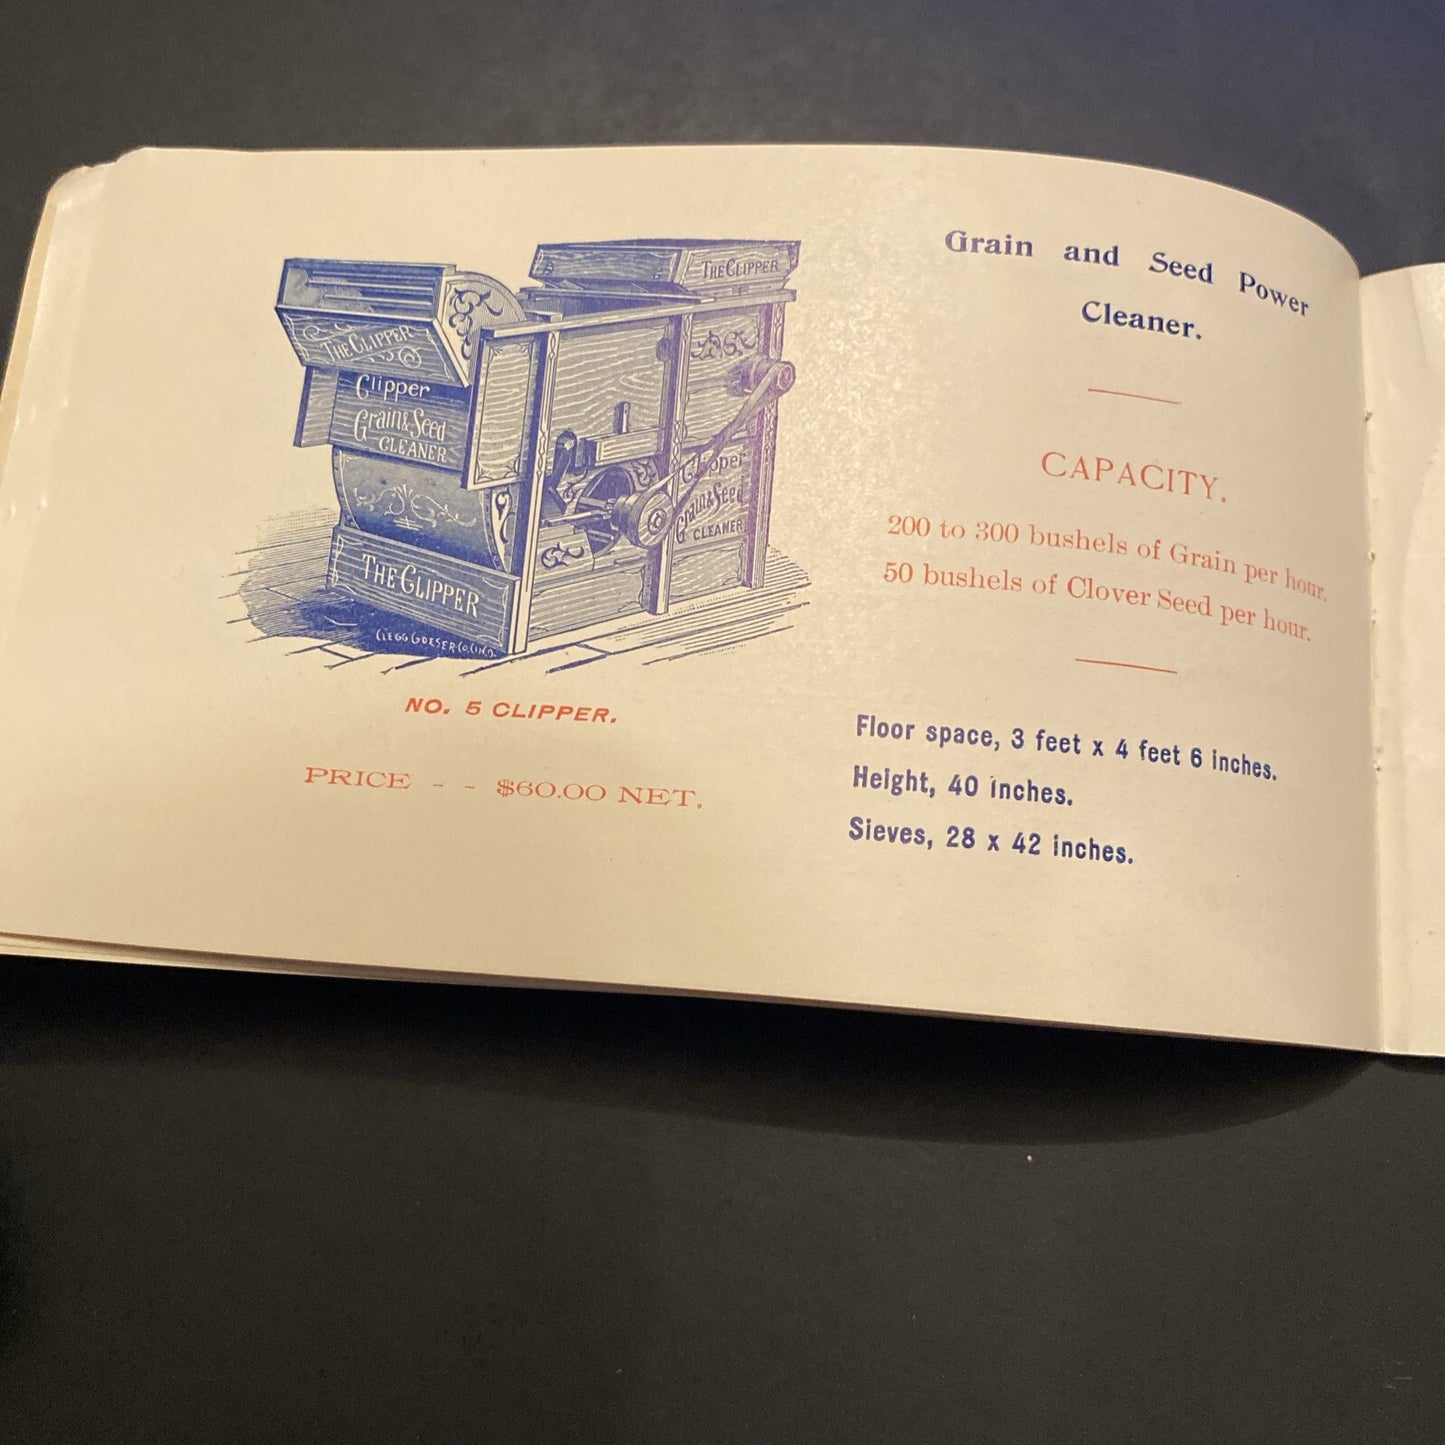 THE CLIPPER
THE CLIPPER
Clipper
Grain & Seed
CLEANER
Clipper
Grain & Seed
CLEANER
THE CLIPPER
CLEGG GOESER CO. CIN. O.
NO. 5 CLIPPER.
PRICE - - $60.00 NET.
Grain and Seed Power
Cleaner.
CAPACITY.
200 to 300 bushels of Grain per hour.
50 bushels of Clover Seed per hour.
Floor space, 3 feet x 4 feet 6 inches.
Height, 40 inches.
Sieves, 28 x 42 inches.